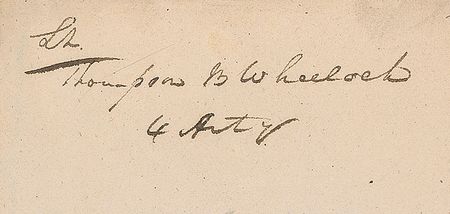 Lt.
Thompson B Wheelock
4 Arty